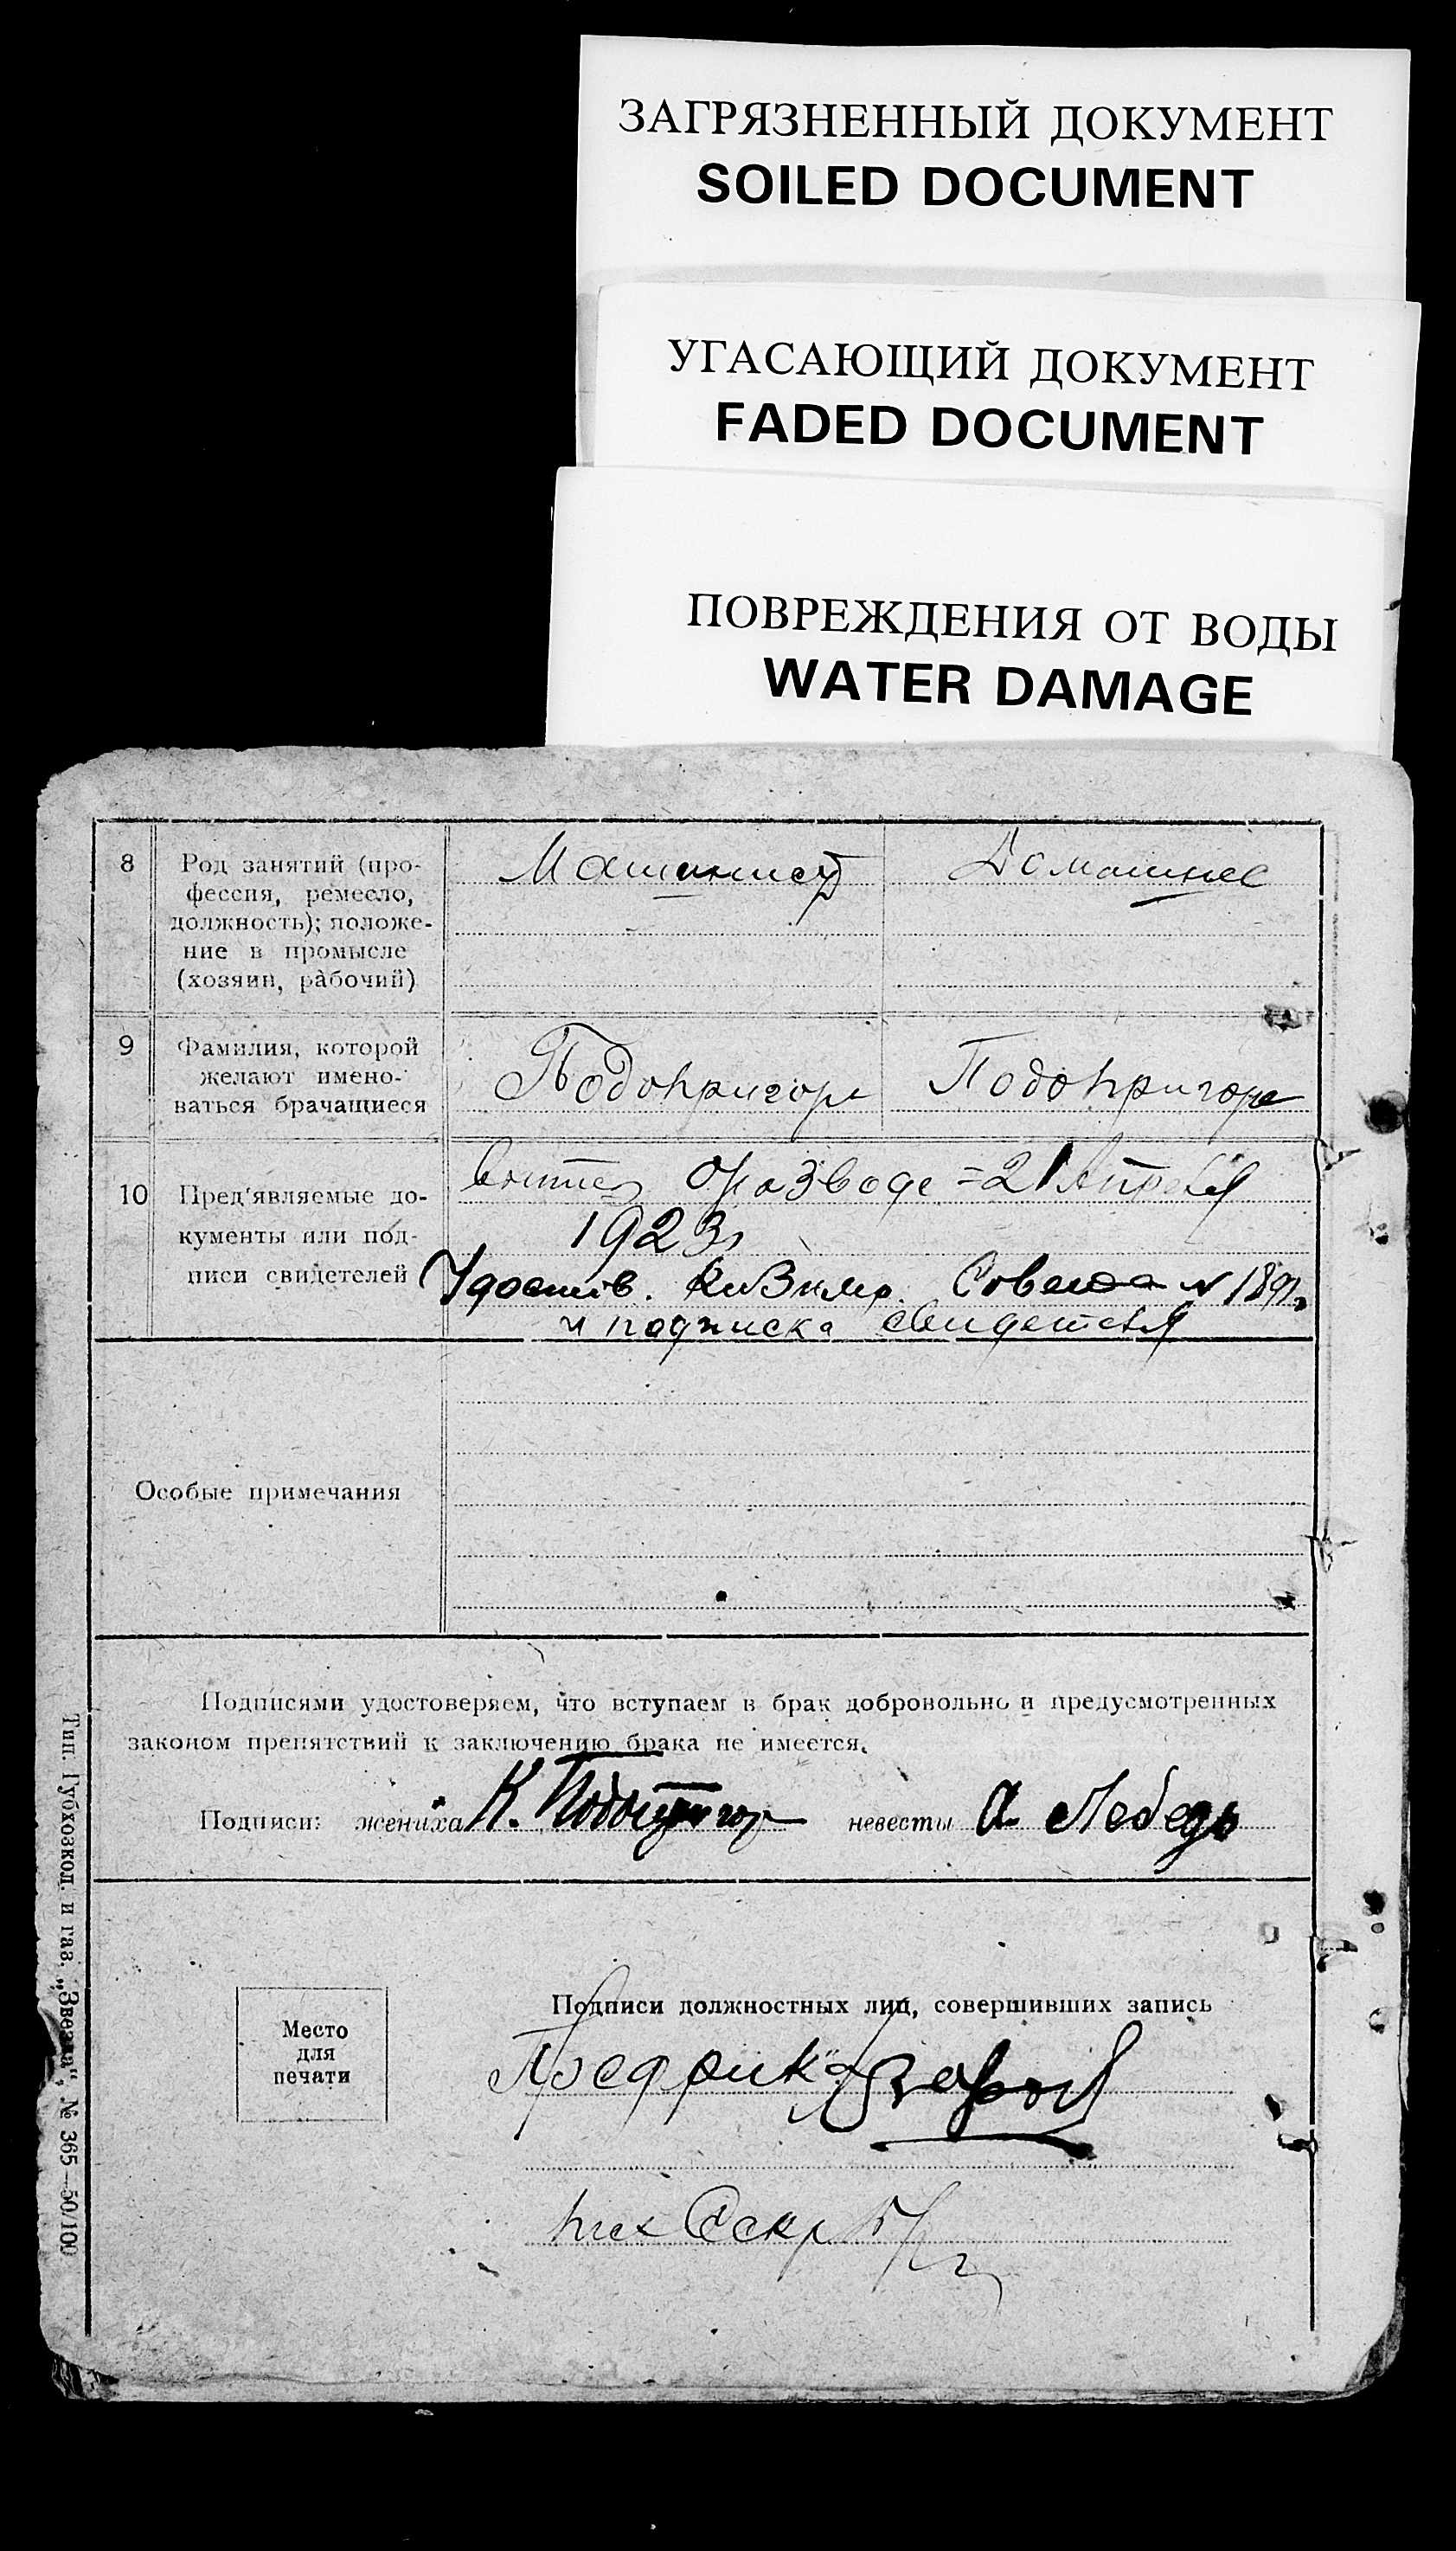 ЗАГРЯЗНЕННЫЙ ДОКУМЕНТ
SOILED DOCUMENT
УГАСАЮЩИЙ ДОКУМЕНТ
FADED DOCUMENT
ПОВРЕЖДЕНИЯ ОТ ВОДЫ
WATER DAMAGE
8
Род занятий (про-
фессия, ремесло,
должность); положе-
ние в промысле
(хозяин, рабочий)
Машинист
Домашнее
9
Фамилия, которой
желают имено-
ваться брачащиеся
Подопригора
Подопригора
10
Пред'являемые до-
кументы или под-
писи свидетелей
о разводе = 21 Апреля
1923г
Удостов. Совета № 1891
и подписка свидетеля
Особые примечания
Подписями удостоверяем, что вступаем в брак добровольно и предусмотренных
законом препятствий к заключению брака не имеется.
Подписи: жениха К. Подопригор невесты А Лебедь
Место
для
печати
Подписи должностных лиц, совершивших запись
Секр
Тип. Губхозкол. и газ. „Звезда“, № 365—50/100